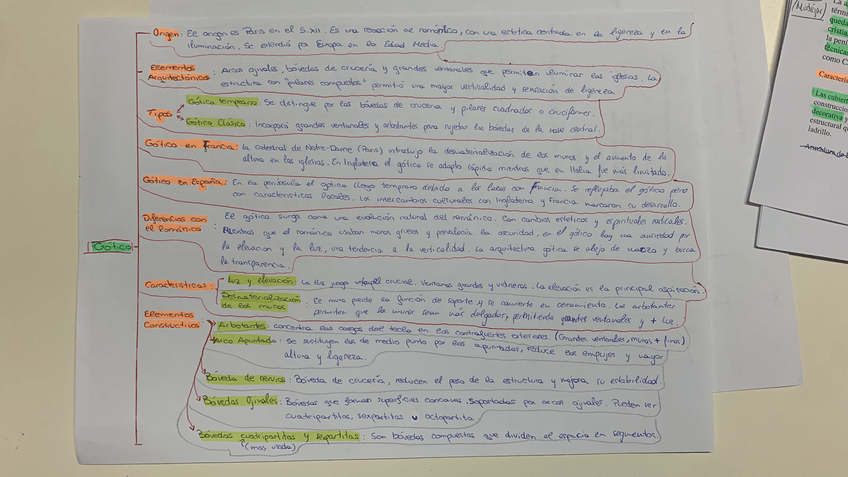 Origen: El origen es Paris en el S.XII. Es una reacción al románico, con una estética centrada en la ligereza y en la
iluminación. Se extendió por Europa en la Edad Media.
Elementos
Arquitectónicos: Arcos ojivales, bóvedas de crucería y grandes ventanales que permiten iluminar las iglesias. La
estructura con "pilares compuestos" permitió una mayor verticalidad y sensación de ligereza.
Tipos
Gótico temprano: Se distingue por las bóvedas de crucería y pilares cuadrados o cruciformes.
Gótico Clásico: Incorpora grandes ventanales y arbotantes para sujetar las bóvedas de la nave central.
Gótico en Francia: la catedral de Notre-Dame (Paris) introdujo la desmaterialización de los muros y el aumento de la
altura en las iglesias. En Inglaterra el gótico se adapta rápido mientras que en Italia fue más limitado.
Gótico en España: En la península el gótico llego temprano debido a los lazos con Francia. Se reflejaba el gótico pero
con características locales. Los intercambios culturales con Inglaterra y Francia marcaron su desarrollo.
Diferencias con
el Románico: El gótico surge como una evolución natural del románico. Con cambios estéticos y espirituales radicales
Mientras que el románico usaban muros gruesos y prevalecía la oscuridad, en el gótico hay una por
la elevación y la luz, una tendencia a la verticalidad. La arquitectura gótica se aleja de y busca
la transparencia.
Gótico
Características:
Luz y elevación: La luz juega un papel crucial. Ventanas grandes y vidrieras. La elevación es la principal aspiración.
Desmaterialización
de los muros: El muro pierde su función de soporte y se convierte en cerramiento. Los arbotantes
permiten que los muros sean más delgados, permitiendo grandes ventanales y + luz
Elementos
Constructivos
Arbotantes: concentra las cargas del techo en los contrafuertes exteriores. (Grandes ventanales, muros + finos)
Arco Apuntado: Se sustituyen los de medio punto por los apuntados, reduce los empujes y mayor
altura y ligereza.
Bóveda de: Bóveda de crucería, reducen el peso de la estructura y mejora su estabilidad.
Bóvedas Ojivales: Bóvedas que forman superficies concavas. Soportadas por arcos ojivales. Pueden ser
cuatripartitas, sexpartitas u octopartita
Bóvedas cuatripartitas y sexpartitas: Son bóvedas compuestas que dividen el espacio en segmentos
(mas usada)
(Mudéjar)
térm
queda
cristia
la pení
técnicas
como C
Caracterís
Las cubiert
construcción
decorativa y
estructural q
ladrillo.